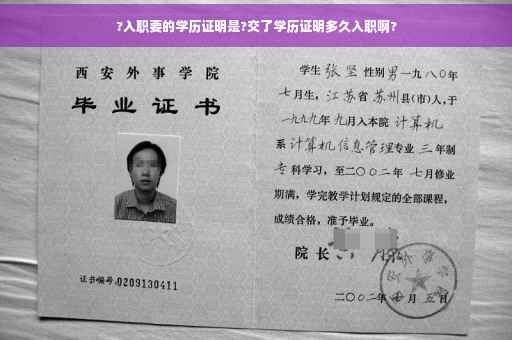 ?入职要的学历证明是?交了学历证明多久入职啊?
西安外事学院
毕业证书
证书编号:0209130411
学生 张坚 性别 男 一九八〇年
七月生，江苏省 苏州县(市)人，于
一九九九年九月入本院 计算机
系 计算机信息管理专业 三 年制
专科学习，至二〇〇二年 七月修业
期满，学完教学计划规定的全部课程，
成绩合格，准予毕业。
院长
二〇〇二年 七月五日